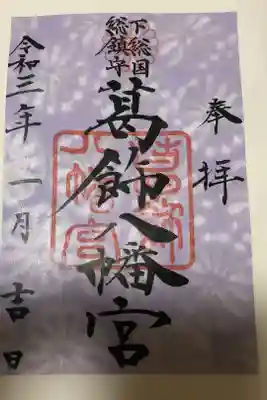 奉拝
下総国
総鎮守
葛飾八幡宮
令和三年一月吉日